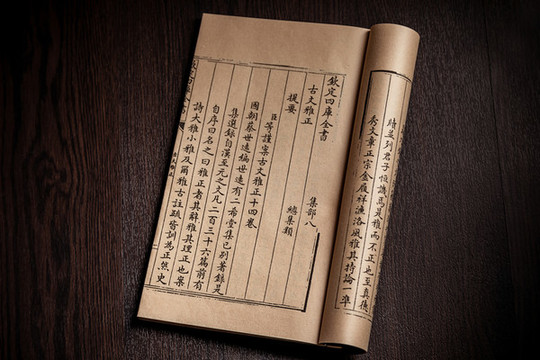 時並列君子恆譏焉是雅而不正也至真德
秀文章正宗金履祥濂洛風雅其持論一準
欽定四庫全書
古文雅正 集部八
提要 總集類
臣等謹案古文雅正十四卷
國朝蔡世遠編世遠有二希堂集已别著録是
集選録自漢至元之文凡二百三十六篇前有
自序曰名之曰雅正者其辭雅其理正也案
詩大雅小雅及爾雅古註疏皆訓為正然史